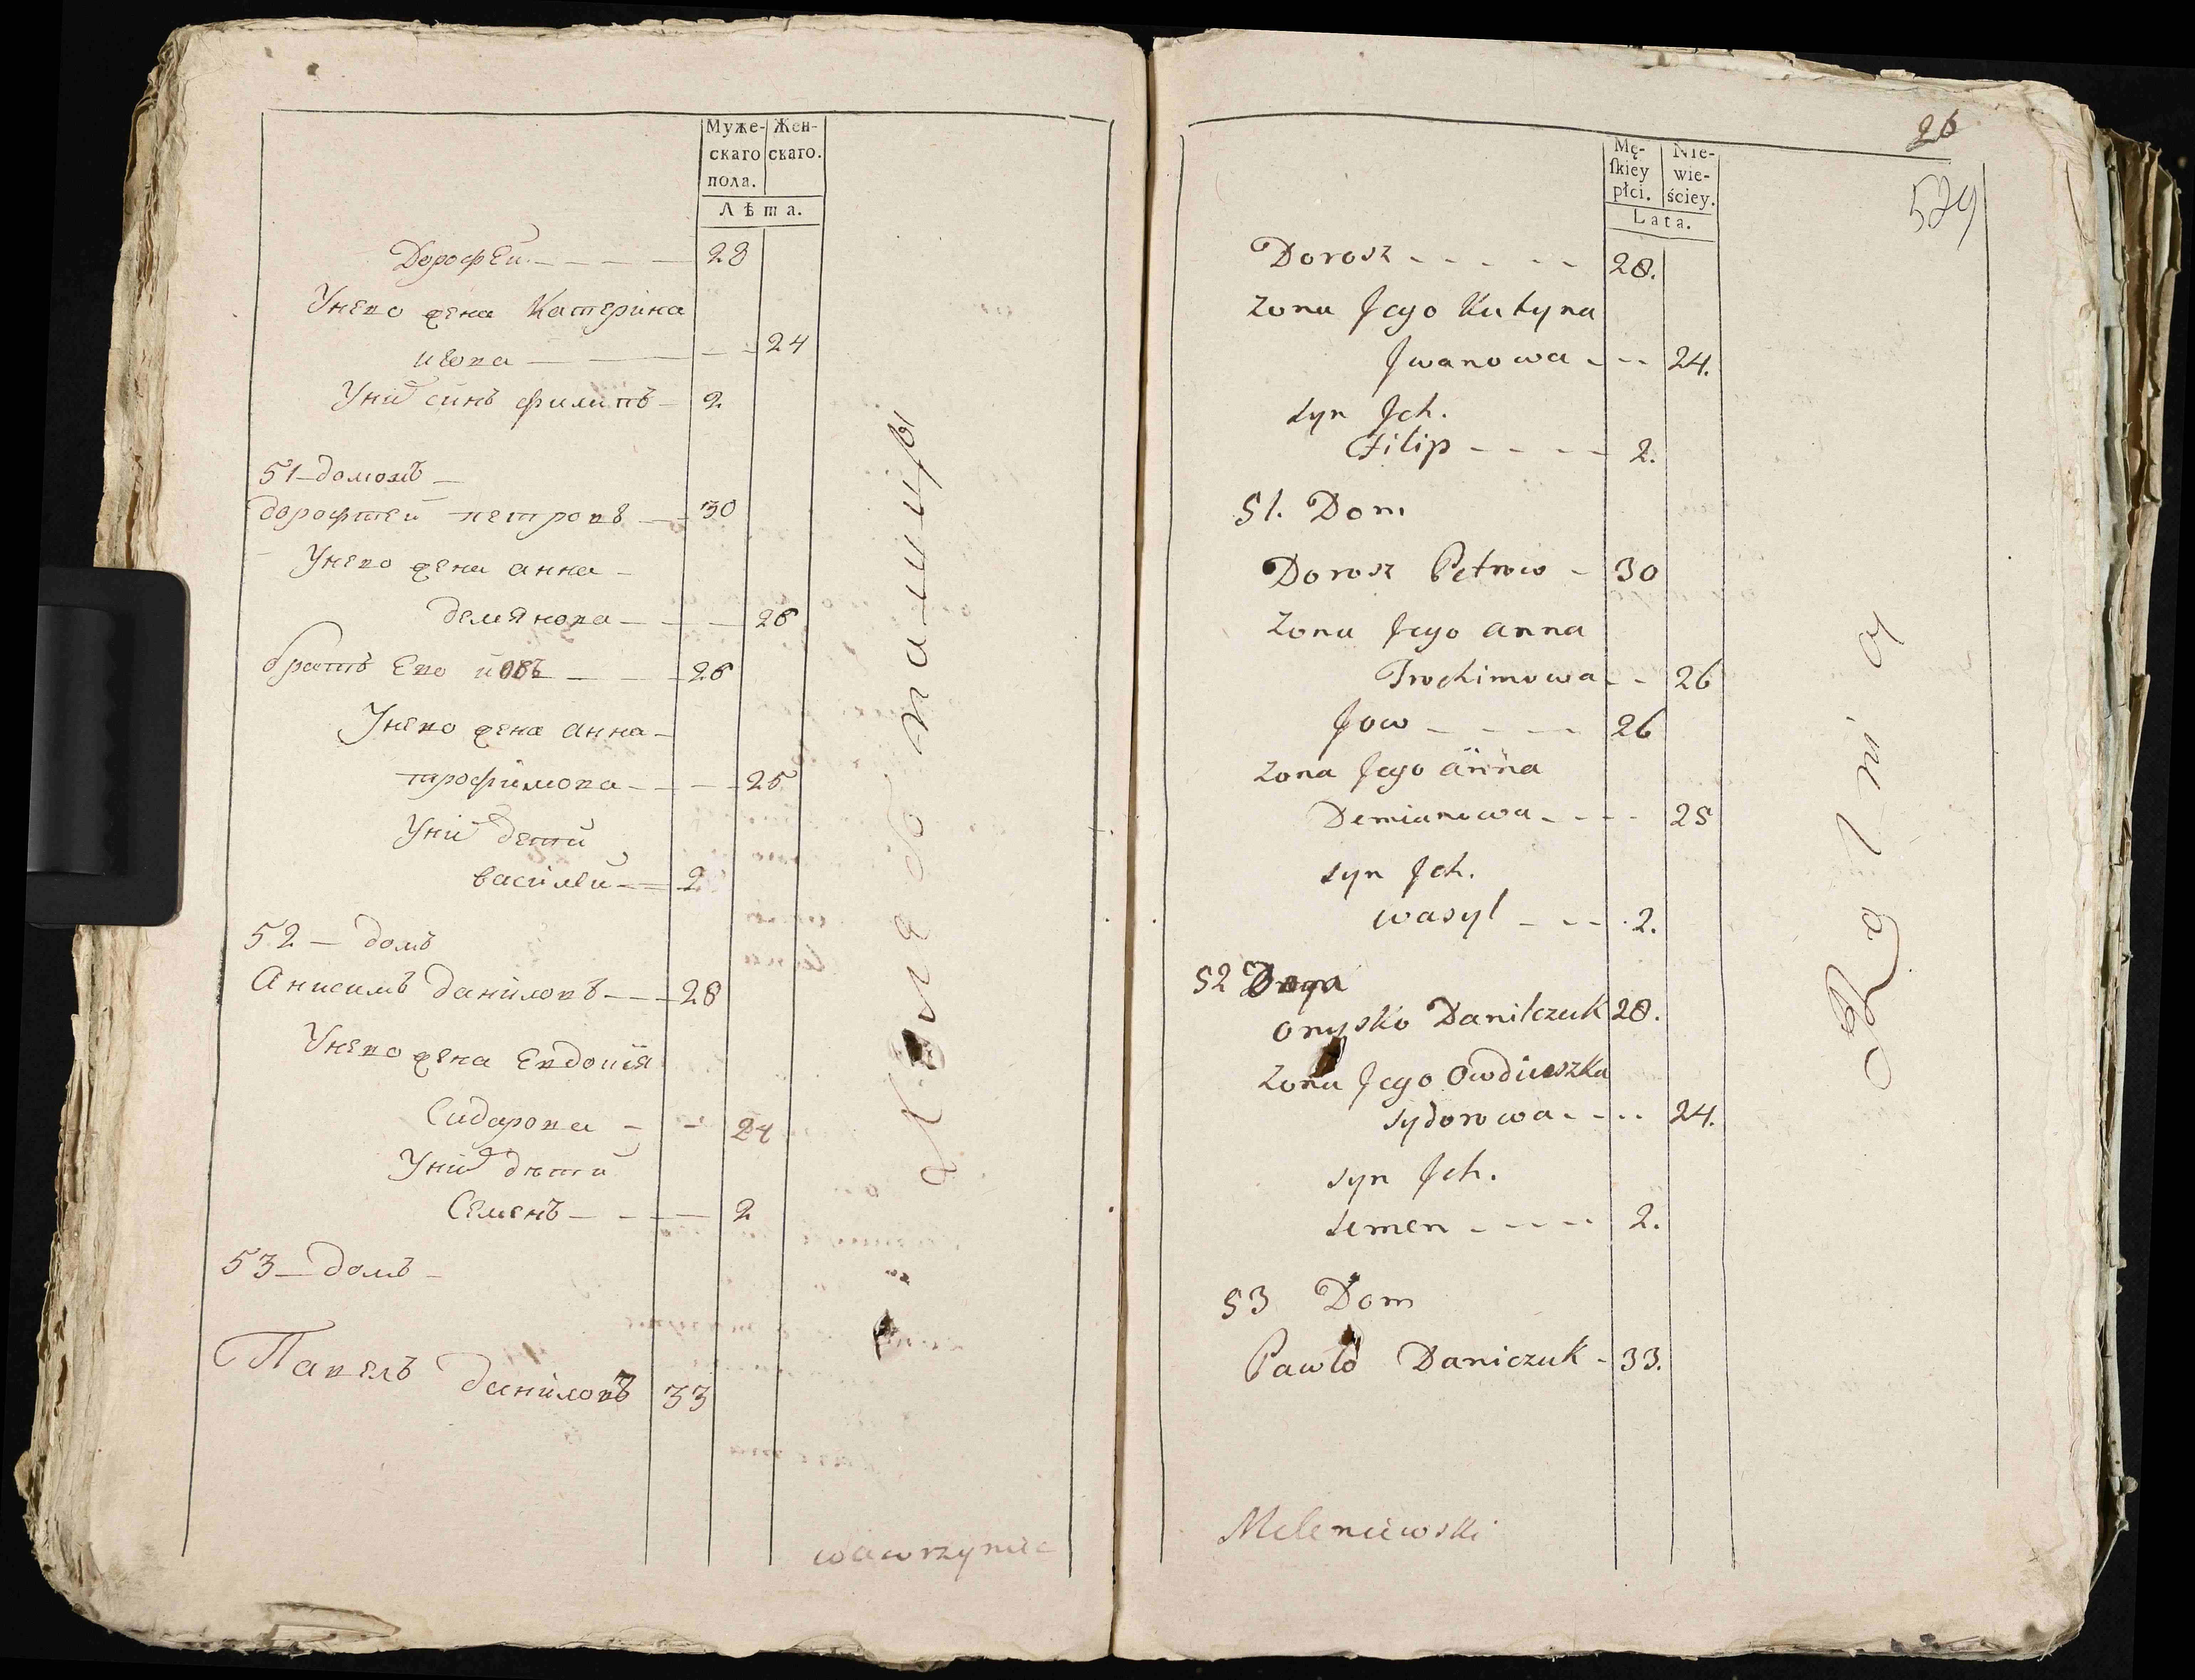 Муже- Жен-
скаго скаго.
пола.
Лѣта.
Дорофеи 28
Унего жена Катерина
24
Уний синъ филипъ 2
51 домомъ
дорофтей петровъ 30
Унего жена анна
демянова 26
братъ Его иовъ 26
Унего жена анна
трофимова 25
Уний дети
василеи 2
52 домъ
Анисимъ даниловъ 28
Унего жена Евдокия
Сидорова 24
Уний дѣти
Семенъ 2
53 домъ
Павелъ даниловъ 33
wawrzyniec
26
529
Mę- Nie-
ſkiey wie-
płci. ściey.
Lata.
Dorosz 28.
Zona Jego Katyna
Jwanowa 24.
syn Jch.
Filip 2.
51. Dom
Dorosz Petrow 30
Zona Jego anna
Trochimowa 26
Jow 26
Zona Jego anna
Demianowa 25
syn Jch.
wasyl 2.
52 Dom
onysko Danilczuk 28.
Zona Jego Owdieszka
sydorowa 24.
syn Jch.
semen 2.
53 Dom
Pawło Daniczuk 33.
Rolnia
Meleniewski